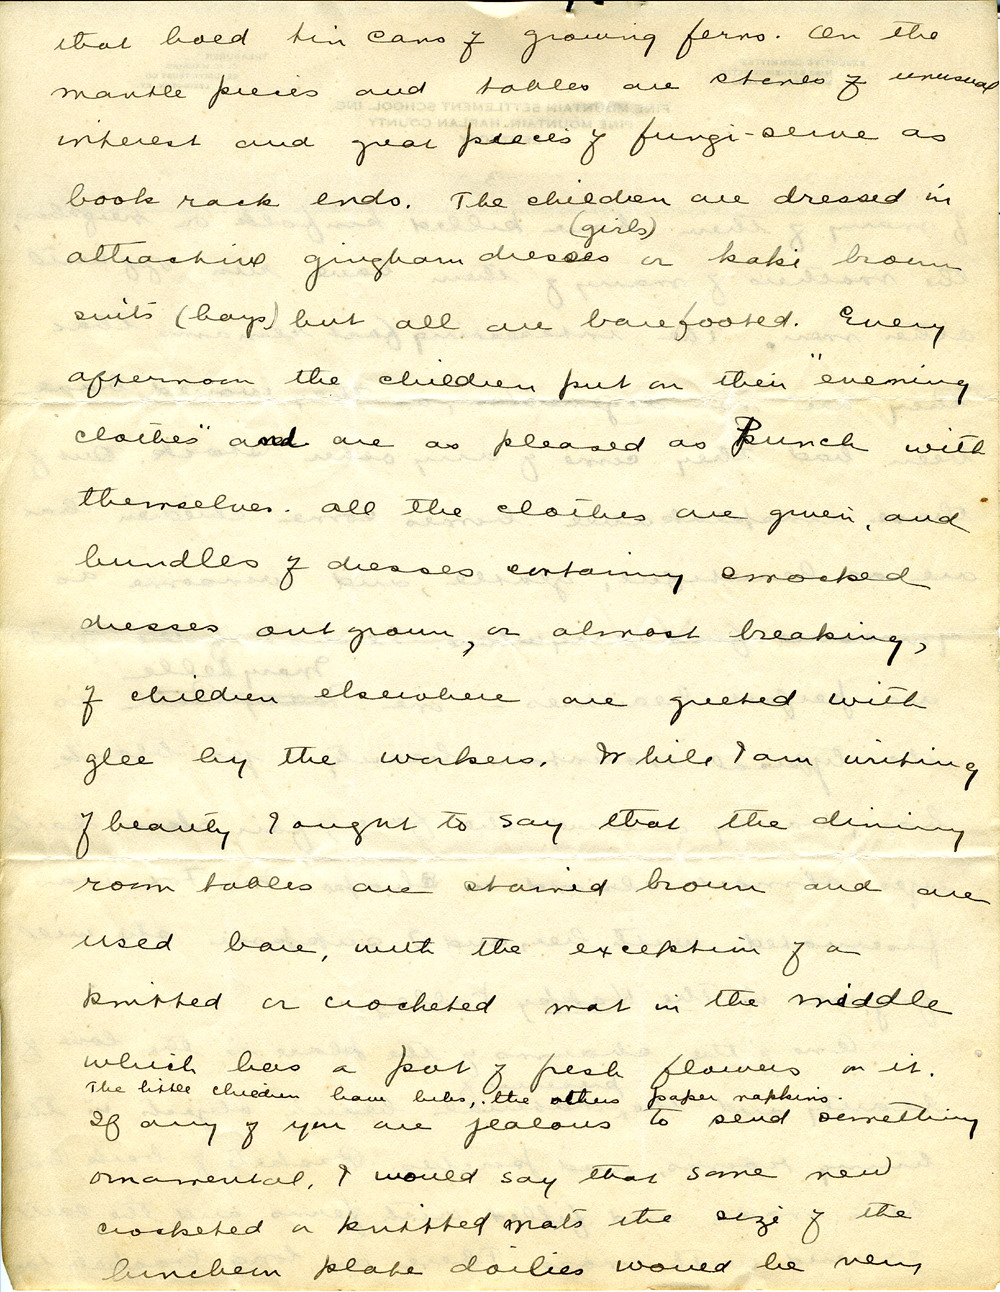 that hold tin cans of growing ferns. On the
mantle pieces and tables are stones of unusual
interest and great pieces of fungi-serve as
book rack ends. The children are dressed in
(girls)
attractive gingham dresses or kaki brown
suits (boys) but all are barefooted. Every
afternoon the children put on their "evening
clothes" and are as pleased as Punch with
themselves. All the clothes are given, and
bundles of dresses containing smocked
dresses outgrown, or almost breaking,
of children elsewhere are greeted with
glee by the workers. While I am writing
of beauty I ought to say that the dining
room tables are stained brown and are
used bare, with the exception of a
knitted or crocheted mat in the middle
which has a pot of fresh flowers on it.
The little children have bibs, the others paper napkins.
If any of you are jealous to send something
ornamental, I would say that some new
crocheted or knitted mats the size of the
luncheon plate doilies would be very
PINE MOUNTAIN SETTLEMENT SCHOOL, INC.
PINE MOUNTAIN, HARLAN COUNTY